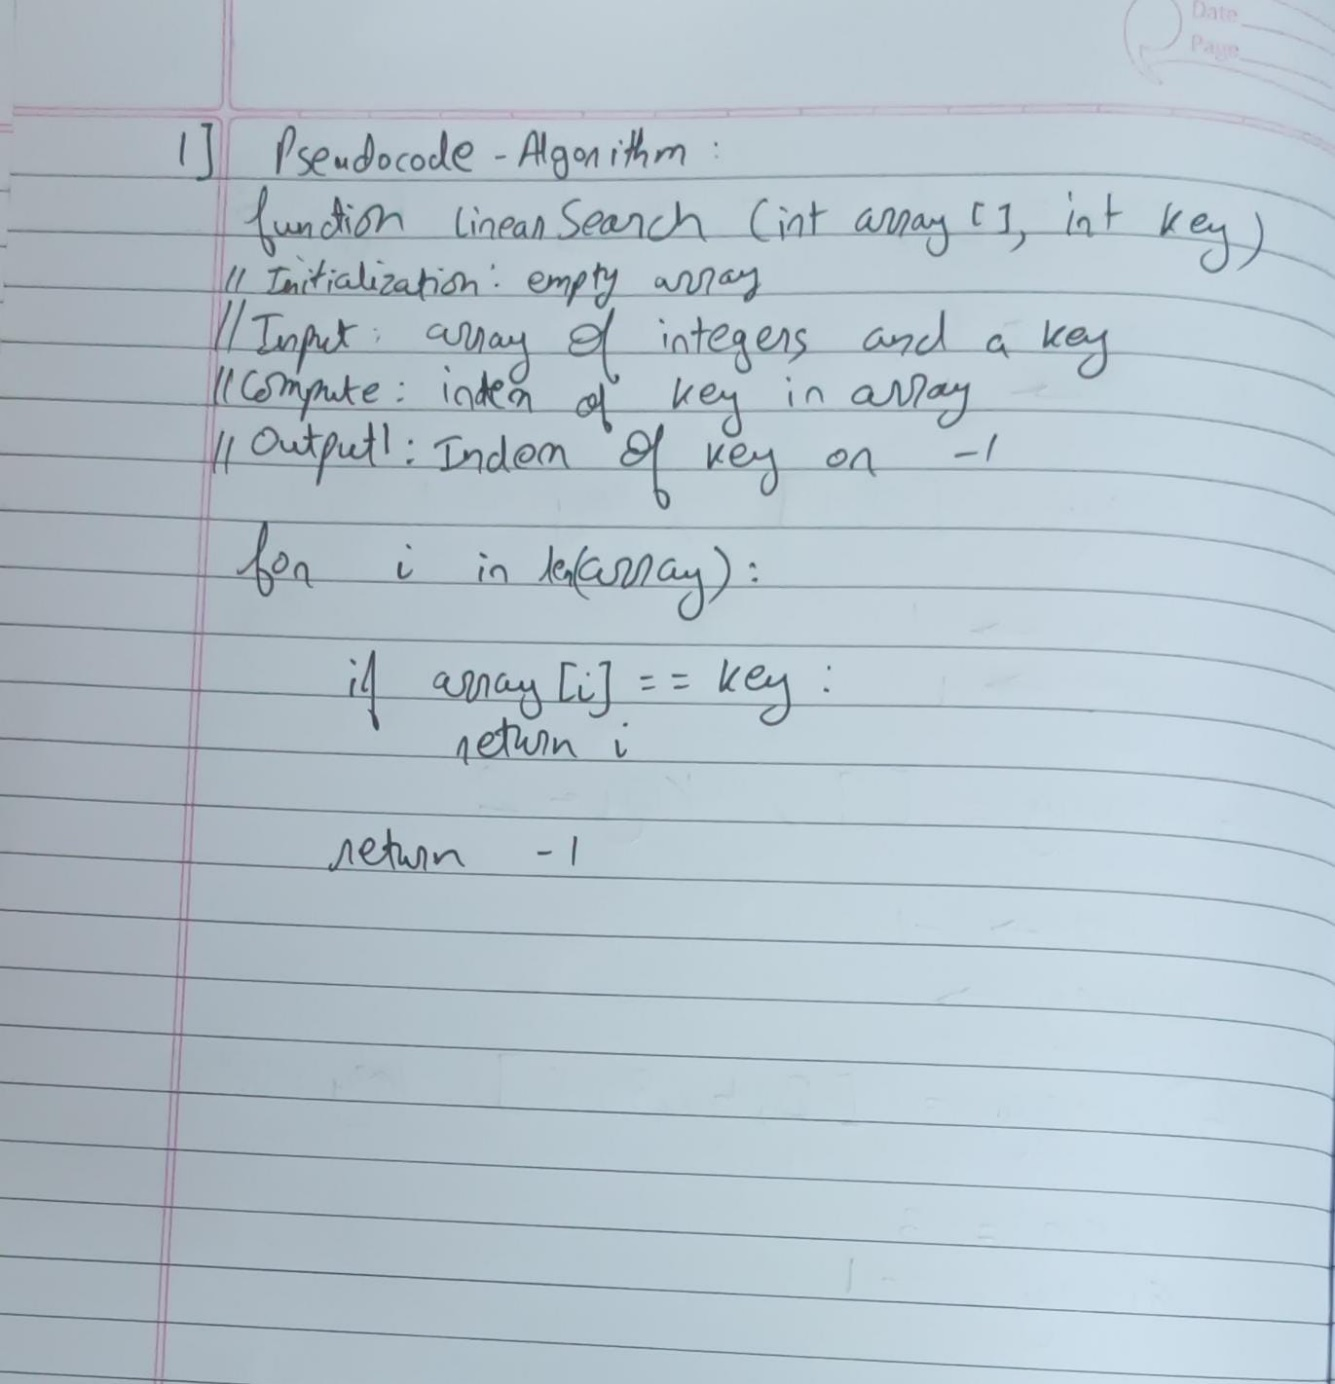 Date
Page
1] Pseudocode - Algorithm :
function linear Search (int array [], int key)
// Initialization : empty array
// Input : array of integers and a key
// Compute : index of key in array
// Output1 : Index of key or -1
for i in len(array) :
if array [i] == key :
return i
return -1